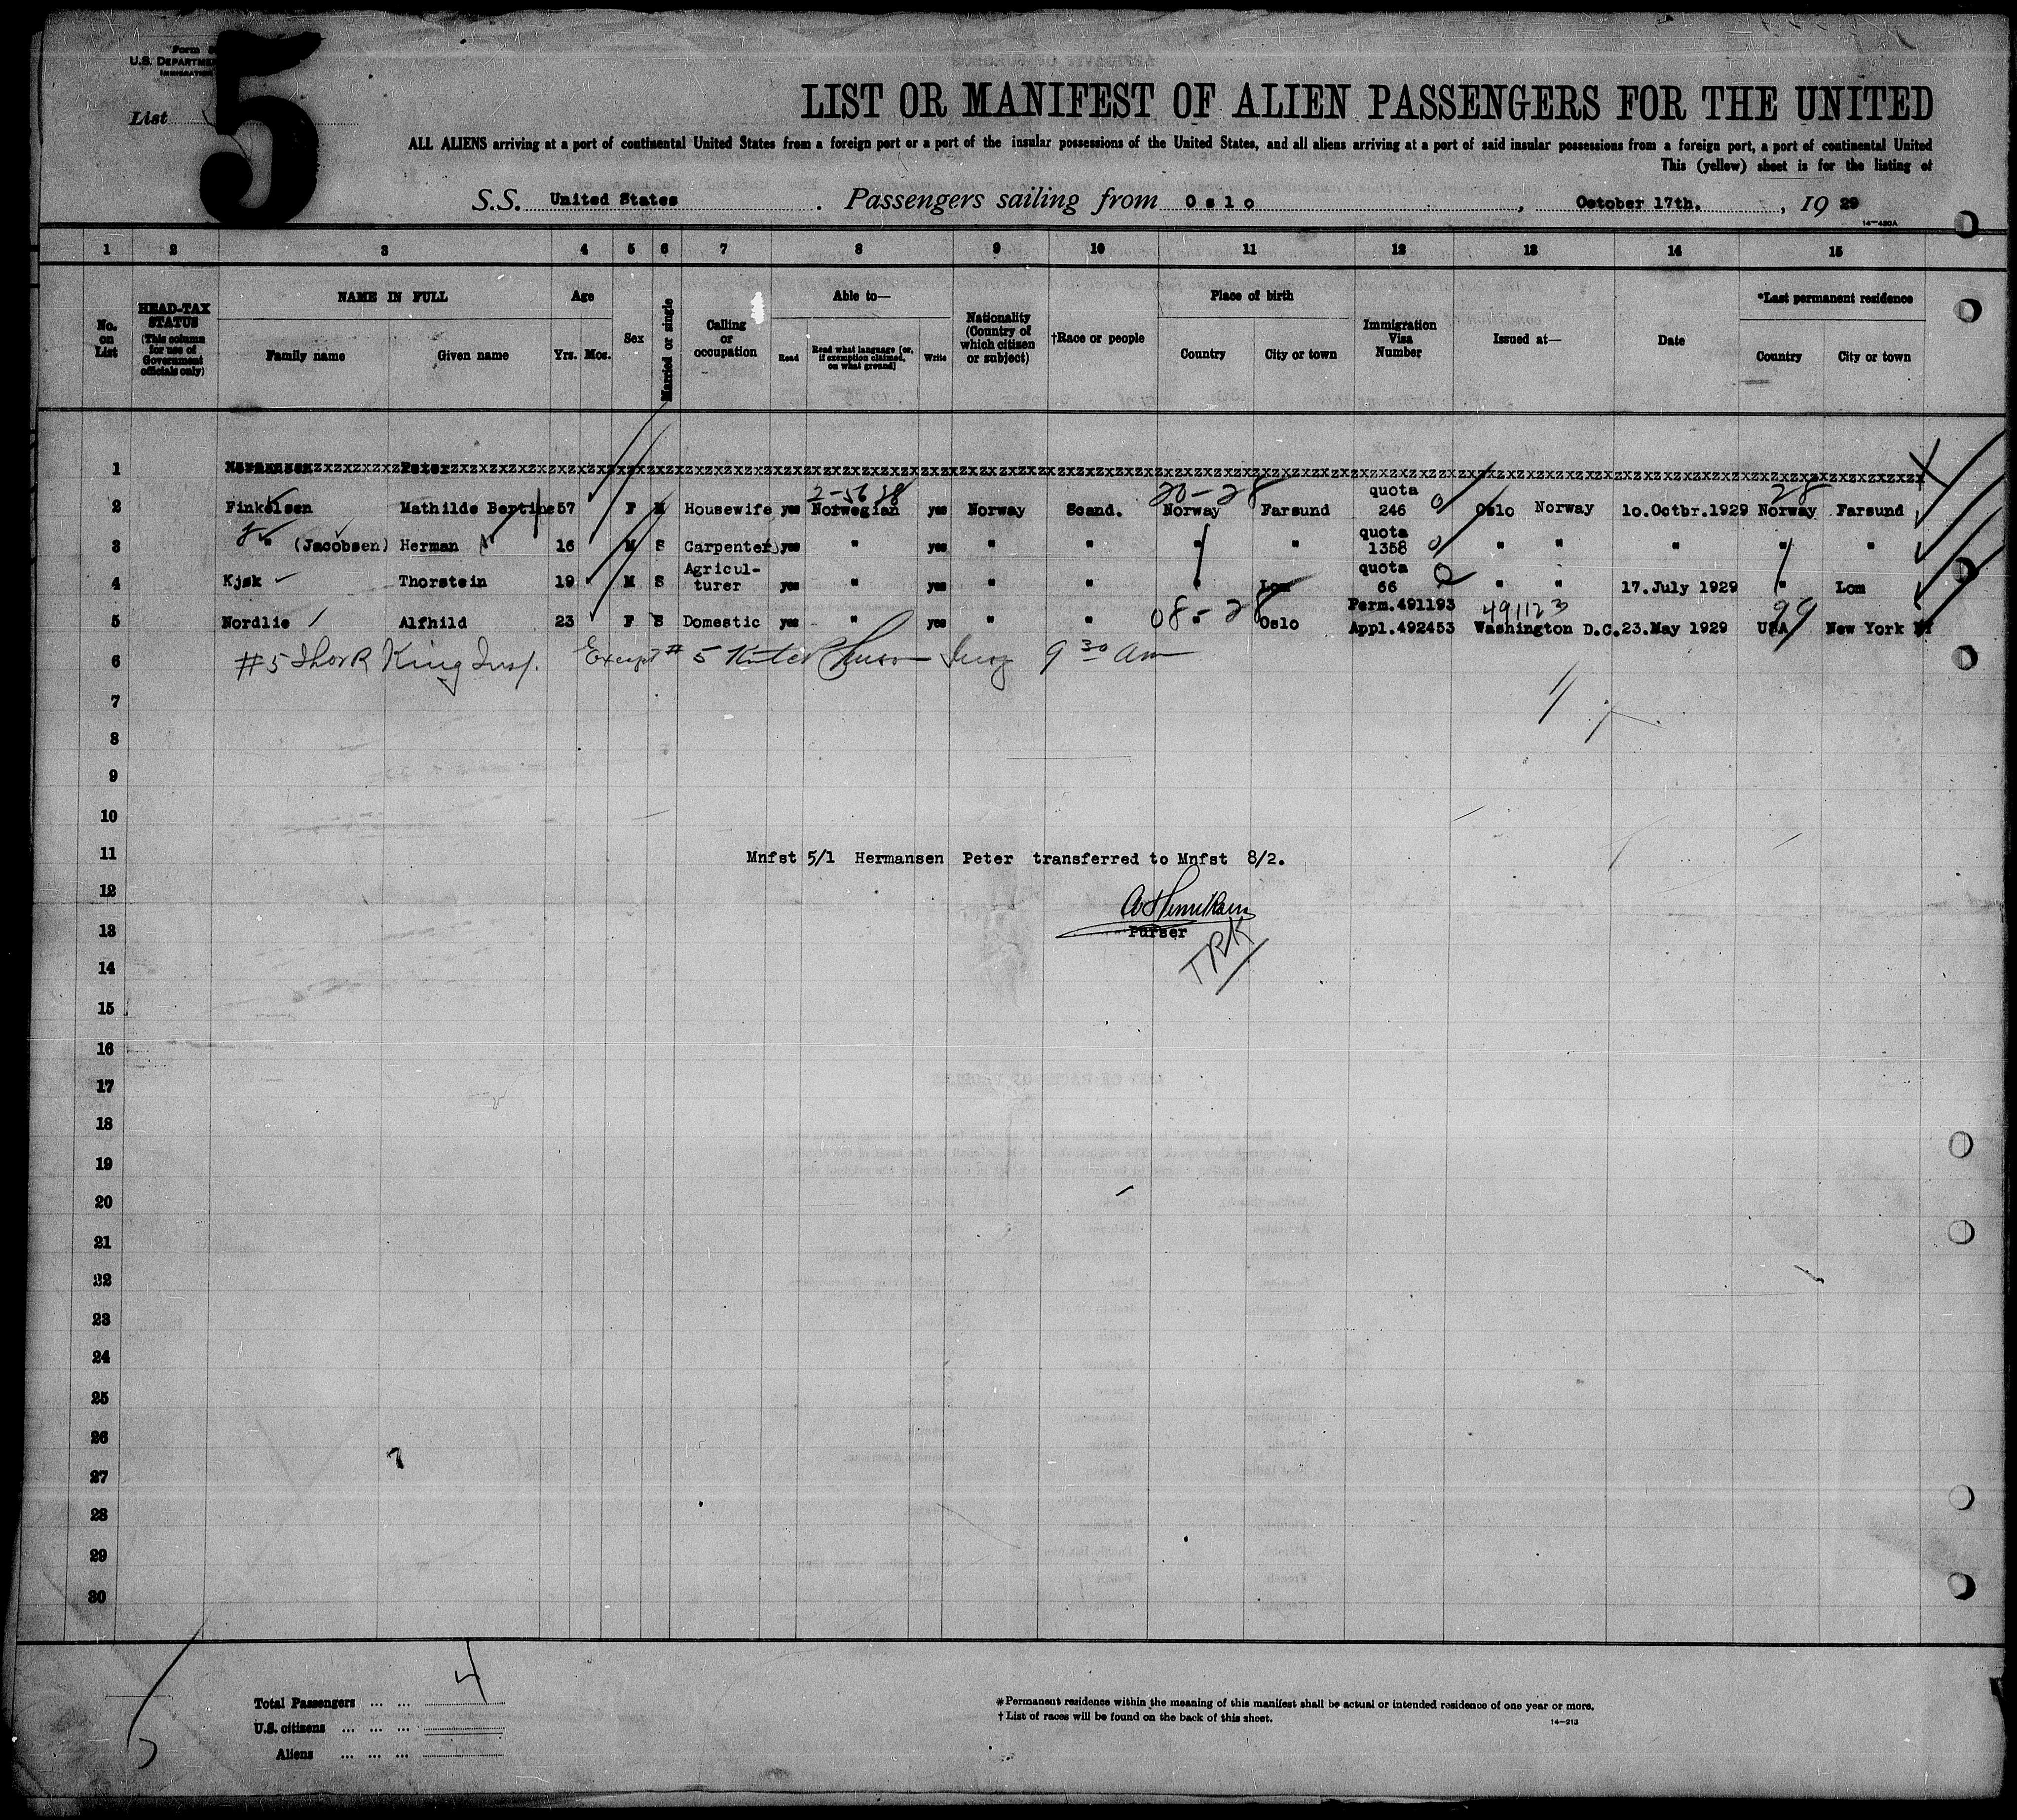 Form
U.S. DEPARTME
IMMIGRATION
5
List
LIST OR MANIFEST OF ALIEN PASSENGERS FOR THE UNITED
ALL ALIENS arriving at a port of continental United States from a foreign port or a port of the insular possessions of the United States, and all aliens arriving at a port of said insular possessions from a foreign port, a port of continental United
This (yellow) sheet is for the listing of
S.S. United States. Passengers sailing from Oslo, October 17th., 19 29
14—430A
1 2 3 4 5 6 7 8 9 10 11 12 13 14 15
No. on List
HEAD-TAX STATUS (This column for use of Government officials only)
NAME IN FULL
Family name Given name
Age
Yrs. Mos.
Sex
Married or single
Calling or occupation
Able to—
Read Read what language [or, if exemption claimed, on what ground] Write
Nationality (Country of which citizen or subject)
†Race or people
Place of birth
Country City or town
Immigration Visa Number
Issued at—
Date
*Last permanent residence
Country City or town
1 Hermansen Peter
2-56 38 20-28 28
2 Finkelsen Mathilde Bertine 57 F M Housewife yes Norwegian yes Norway Scand. Norway Farsund quota 246 Oslo Norway 10.Octbr.1929 Norway Farsund
3 " (Jacobsen) Herman 16 M S Carpenter yes " yes " " " " quota 1358 " " " " "
4 Kjøk Thorstein 19 M S Agricul-turer yes " yes " " " Lom quota 66 " " 17.July 1929 " Lom
08-28 491123 99
5 Nordlie Alfhild 23 F S Domestic yes " yes " " " Oslo Perm.491193 Appl.492453 Washington D.C. 23.May 1929 USA New York NY
6 #5 Thor R King Insp. Except # 5 9 30 am
7
8
9
10
11 Mnfst 5/1 Hermansen Peter transferred to Mnfst 8/2.
12
13 Purser
TRK
14
15
16
17
18
19
20
21
22
23
24
25
26
27
28
29
30
Total Passengers ... ... 4
U.S. citizens ... ... ...
Aliens ... ... ...
*Permanent residence within the meaning of this manifest shall be actual or intended residence of one year or more.
† List of races will be found on the back of this sheet.
14—213